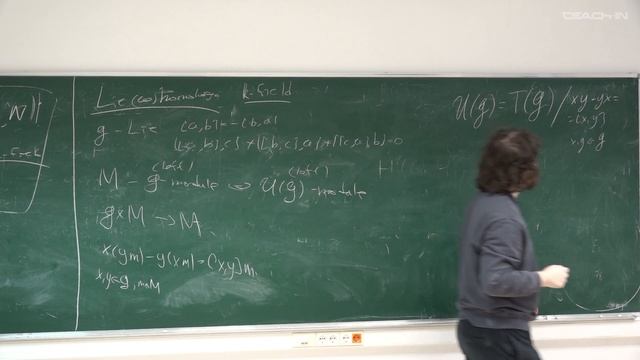 Lie (co)homology k-field
g - Lie [a,b]=-[b,a]
[[a,b],c]+[[b,c],a]+[[c,a],b]=0
(left) (left)
M - g-module ⇔ U(g)-module
g×M→M
x(ym)-y(xm)=[x,y]m
x,y∈g, m∈M
U(g)=T(g)/xy-yx=
=[x,y]
x,y∈g
TEACH-IN